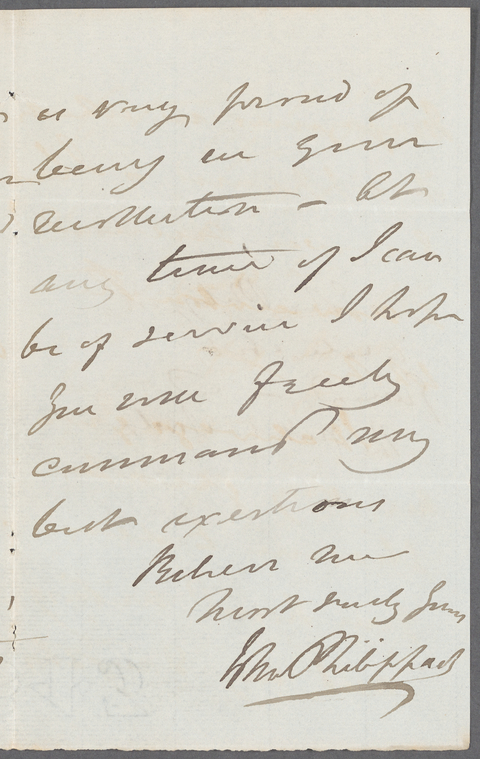 is very proud of
being in your
recollection – At
any time if I can
be of service I hope
you will freely
command my
best exertions
Believe me
Most truly yours
Jno. Philippart